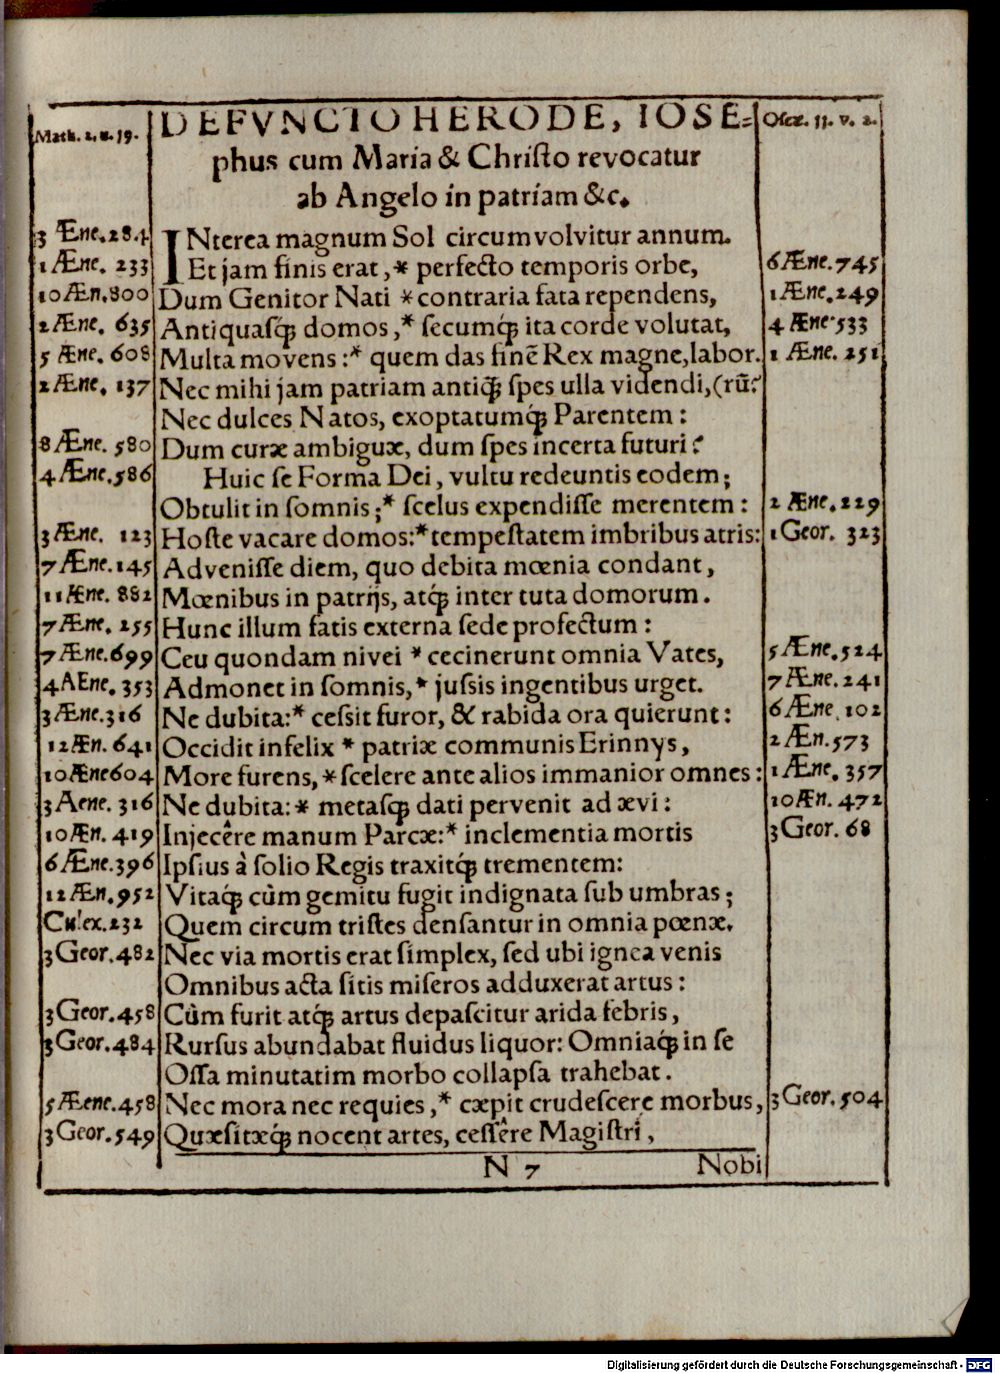 Math. 2. v. 19. DEFVNCTO HERODE, IOSE= Oseæ. 11. v. 2.
phus cum Maria & Christo revocatur
ab Angelo in patriam &c.
3 Æne. 284 INterea magnum Sol circumvolvitur annum.
1 Æne. 233 Et jam finis erat, * perfecto temporis orbe, 6 Æne. 745
10 Æn. 800 Dum Genitor Nati * contraria fata rependens, 1 Æne. 249
2 Æne. 635 Antiquasq́; domos, * secumq́; ita corde volutat, 4 Æne. 533
5 Æne. 608 Multa movens: * quem das finẽ Rex magne, labor. 1 Æne. 251
2 Æne. 137 Nec mihi jam patriam antiq́; spes ulla videndi, (rũ?
Nec dulces Natos, exoptatumq́; Parentem:
8 Æne. 580 Dum curæ ambiguæ, dum spes incerta futuri?
4 Æne. 586 Huic se Forma Dei, vultu redeuntis eodem;
Obtulit in somnis; * scelus expendisse merentem: 2 Æne. 229
3 Æne. 123 Hoste vacare domos: * tempestatem imbribus atris: 1 Geor. 323
7 Æne. 145 Advenisse diem, quo debita mœnia condant,
11 Æne. 882 Mœnibus in patrijs, atq́; inter tuta domorum.
7 Æne. 255 Hunc illum fatis externa sede profectum:
7 Æne. 699 Ceu quondam nivei * cecinerunt omnia Vates, 5 Æne. 524
4 AEne. 353 Admonet in somnis, * jussis ingentibus urget. 7 Æne. 241
3 Æne. 316 Ne dubita: * cessit furor, & rabida ora quierunt: 6 Æne. 102
12 Æn. 641 Occidit infelix * patriæ communis Erinnys, 2 Æn. 573
10 Æne 604 More furens, * scelere ante alios immanior omnes: 1 Æne. 357
3 Aene. 316 Ne dubita: * metasq́; dati pervenit ad ævi: 10 Æn. 472
10 Æn. 419 Injecêre manum Parcæ: * inclementia mortis 3 Geor. 68
6 Æne. 396 Ipsius à solio Regis traxitq́; trementem:
12 Æn. 952 Vitaq́; cùm gemitu fugit indignata sub umbras;
Culex. 232 Quem circum tristes densantur in omnia pœnæ.
3 Geor. 482 Nec via mortis erat simplex, sed ubi ignea venis
Omnibus acta sitis miseros adduxerat artus:
3 Geor. 458 Cùm furit atq́; artus depascitur arida febris,
3 Geor. 484 Rursus abundabat fluidus liquor: Omniaq́; in se
Ossa minutatim morbo collapsa trahebat.
5 Æene. 458 Nec mora nec requies, * cæpit crudescere morbus, 3 Geor. 504
3 Geor. 549 Quæsitæq́; nocent artes, cessêre Magistri,
N 7 Nobi
Digitalisierung gefördert durch die Deutsche Forschungsgemeinschaft - DFG